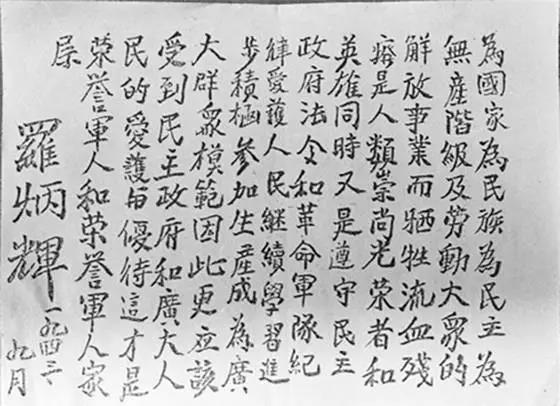 為國家為民族為民主為
無產階級及勞動大衆的
解放事業而牺牲流血殘
癈是人類崇尚光荣者和
英雄同時又是遵守民主
政府法令和革命軍隊紀
律愛護人民継續學習進
步積極參加生産成為廣
大群衆模範因此更应該
受到民主政府和廣大人
民的愛護与優待這才是
荣誉軍人和荣誉軍人家
屬
羅炳輝
一九四三
九月